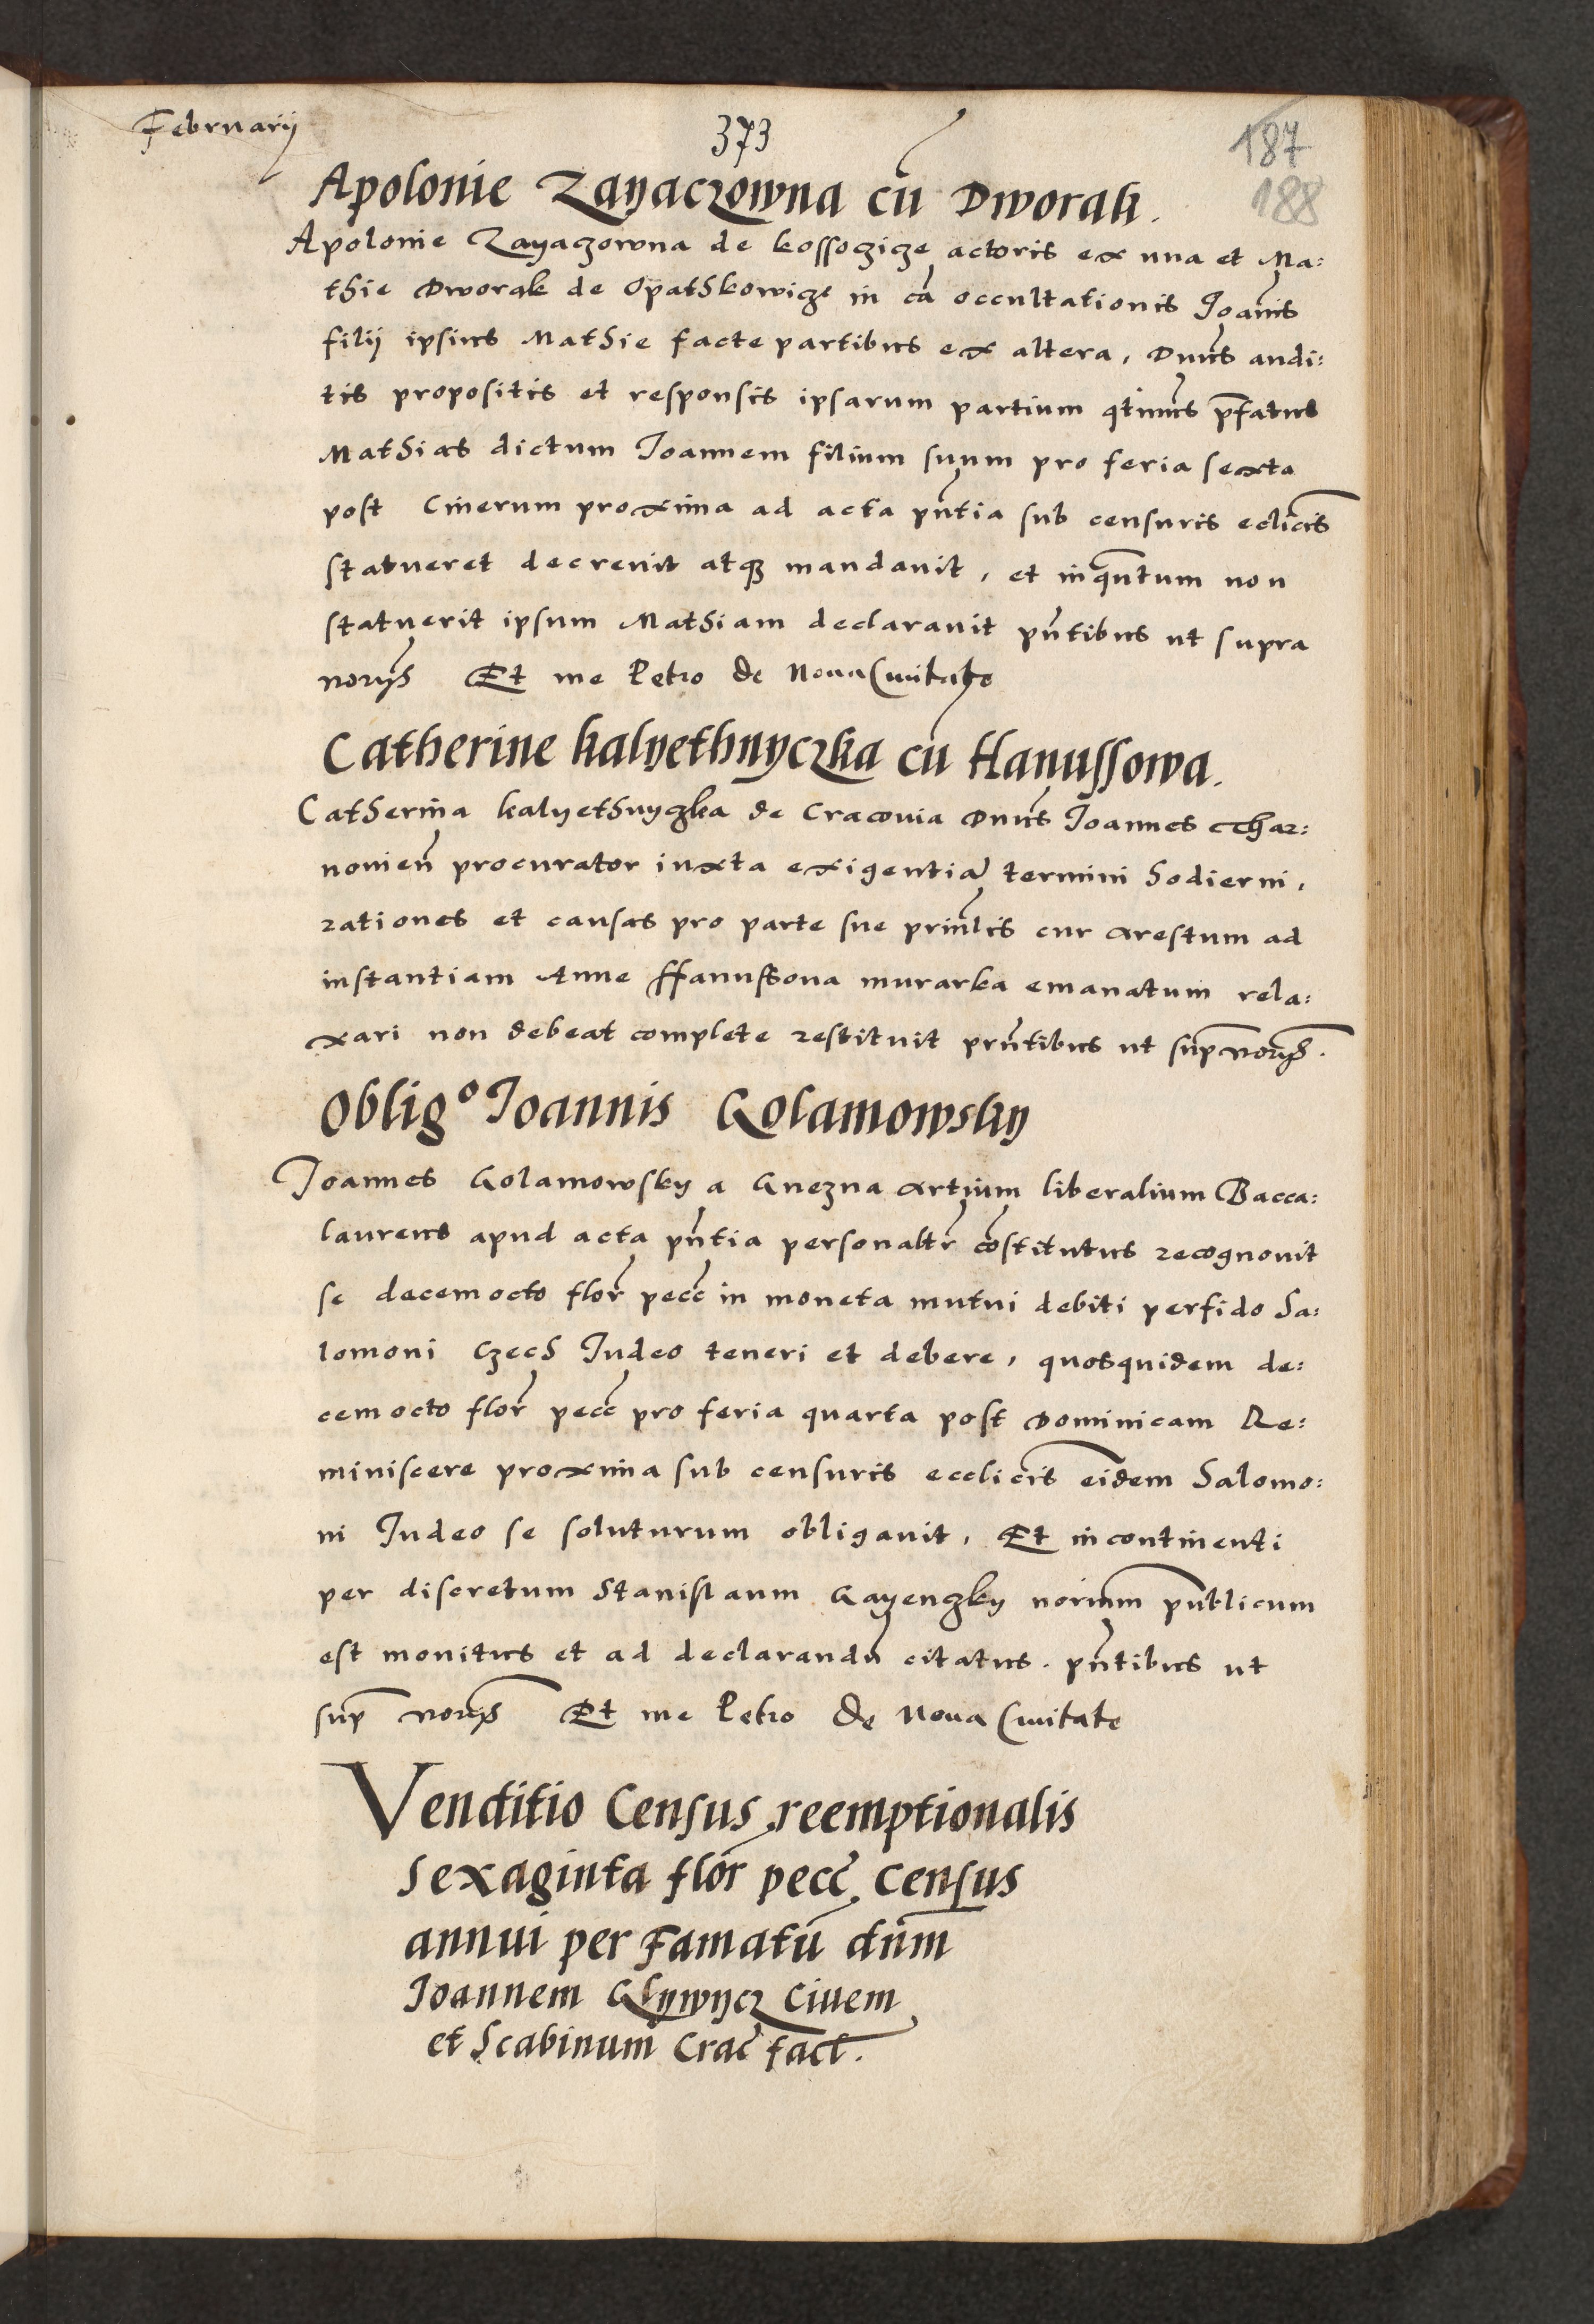 Februarij
373
187
188
Apolonie Zayaczowna cū Dworak.
Apolonie Zayaczowna de kossoczicze actoris ex una et Ma:
thie Dworak de Opathkowicze in cā occultationis Joānis
filij ipsius Mathie facte partibus ex altera, Dnūs audi:
tis propositis et responsis ipsarum partium qtinus p̄fatus
Mathias dictum Joannem filium suum pro feria sexta
post Cinerum proxima ad acta pn̄tia sub censuris eclicis
statueret decrevit atq̄ mandavit, et inqūntum non
statuerit ipsum Mathiam declaravit pn̄tibus ut supra
norijs Et me Petro de Nova Civitate
Catherine kalyethnyczka cū Hanussowa.
Catherina kalyethnyczka de Cracovia Dnūs Joannes Czhar:
novien̄ procurator iuxta exigentiā termini hodierni,
rationes et causas pro parte sue prin̄lis cur arestum ad
instantiam Anne Hanussova murarka emanatum rela:
xari non debeat complete restituit prn̄tibus ut sup̄ norijs.
Obligº Joannis Golamowsky
Joannes Golamowsky a Gnezna artium liberalium Bacca:
laureus apud acta pn̄tia personaltr̄ cōstitutus recognovit
se decemocto flor̄ pecc̄ in moneta mutui debiti perfido Sa:
lomoni Czech Judeo teneri et debere, quosquidem de:
cemocto flor̄ pecc̄ pro feria quarta post Dominicam Re:
miniscere proxima sub censuris ecclicis eidem Salomo:
ni Judeo se soluturum obligavit, Et incontinenti
per discretum Stanislaum Gayenczky norium publicum
est monitus et ad declarandū citatus. pn̄tibus ut
sup̄ norijs Et me Petro de Nova Civitate
Venditio Census reemptionalis
Sexaginta flor̄ pecc̄ Census
annui per Famatū dn̄m
Joannem Glywycz Civem
et Scabinum Crac̄ fact.